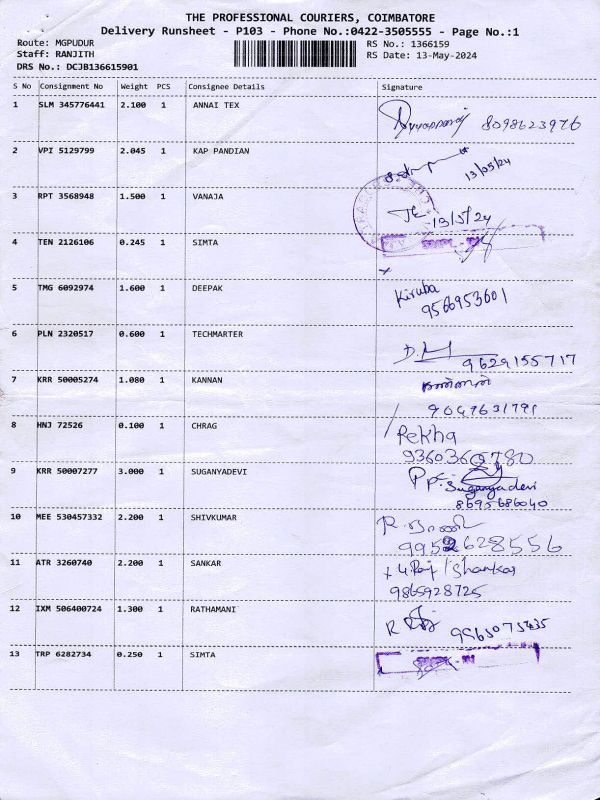 THE PROFESSIONAL COURIERS, COIMBATORE
Delivery Runsheet - P103 - Phone No.:0422-3505555 - Page No.:1
Route: MGPUDUR
Staff: RANJITH
DRS No.: DCJB136615901
RS No.: 1366159
RS Date: 13-May-2024
S No Consignment No Weight PCS Consignee Details Signature
1 SLM 345776441 2.100 1 ANNAI TEX
8098623976
2 VPI 5129799 2.045 1 KAP PANDIAN
13/05/24
3 RPT 3568948 1.500 1 VANAJA
13/5/24
4 TEN 2126106 0.245 1 SIMTA
5 TMG 6092974 1.600 1 DEEPAK
Kiruba
9566953601
6 PLN 2320517 0.600 1 TECHMARTER
9629155717
7 KRR 50005274 1.080 1 KANNAN
9047631791
8 HNJ 72526 0.100 1 CHRAG
Rekha
9360360780
9 KRR 50007277 3.000 1 SUGANYADEVI
Suganyadevi
8695686040
10 MEE 530457332 2.200 1 SHIVKUMAR
9952628556
11 ATR 3260740 2.200 1 SANKAR
Shankar
9865928725
12 IXM 506400724 1.300 1 RATHAMANI
13 TRP 6282734 0.250 1 SIMTA